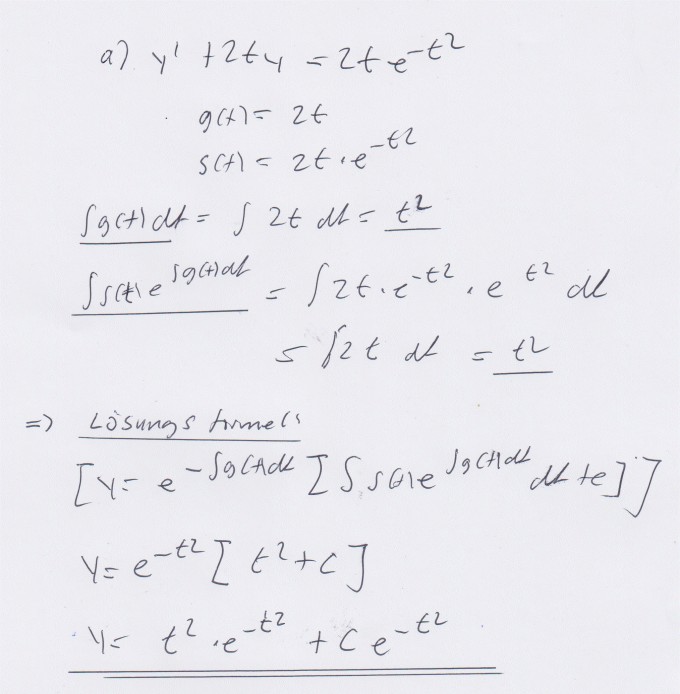 a) y' + 2ty = 2t e^{-t^2}
g(t) = 2t
s(t) = 2t · e^{-t^2}
∫g(t)dt = ∫ 2t dt = t^2
∫s(t)e^{∫g(t)dt} = ∫2t · e^{-t^2} · e^{t^2} dt
= ∫2t dt = t^2
=> Lösungsformel:
[y = e^{-∫g(t)dt} [∫s(t)e^{∫g(t)dt} dt + c]]
y = e^{-t^2} [t^2 + C]
y = t^2 · e^{-t^2} + C e^{-t^2}